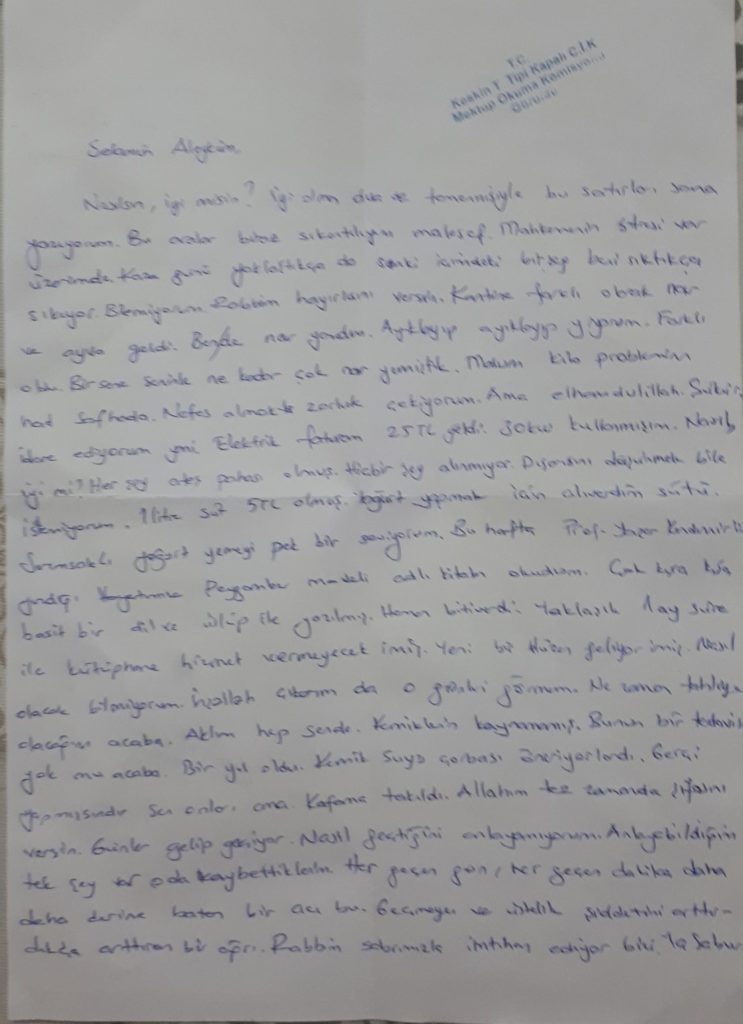 T.C.
Keskin T Tipi Kapalı C.İ.K
Mektup Okuma Komisyonu
Görüldü
Selamün Aleyküm
Nasılsın, iyi misin? İyi olman dua ve temennisiyle bu satırları sana
yazıyorum. Bu aralar biraz sıkıntılıyım malesef. Mahkemenin stresi var
üzerimde. Karar günü yaklaştıkça da sanki içimdeki bir şey beni sıktıkça
sıkıyor. Bilemiyorum. Rabbim hayırlısını versin. Kantine farklı olarak nar
ve ayva geldi. Bende nar yazdım. Ayıklayıp ayıklayıp yiyorum. Farklı
oldu. Bir sene seninle ne kadar çok nar yemiştik. Malum kilo problemim
had safhada. Nefes almakta zorluk çekiyorum. Ama elhamdulillah. Şükür,
idare ediyorum yani. Elektrik faturam 25 TL geldi. 30 kw kullanmışım. Nasıl,
iyi mi? Her şey ateş pahası olmuş. Hiçbir şey alınmıyor. Dışarısını düşünmek bile
istemiyorum. 1 litre süt 5TL olmuş. Yoğurt yapmak için alıverdim sütü.
Sarımsaklı yoğurt yemeği pek bir seviyorum. Bu hafta Prof. Yaşar Kandemir'in
yazdığı Peygamber adlı kitabı okudum. Çok kısa kısa
basit bir dil ve üslüp ile yazılmış. Hemen bitiverdi. Yaklaşık 1 ay süre
ile kütüphane hizmet vermeyecek imiş. Yeni bir düzen geliyor imiş. Nasıl
olacak bilmiyorum. İnşallah çıkarım da o günleri görmem. Ne zaman tahliye
olacağım acaba. Aklım hep sende. Kemiklerin kaynamamış. Bunun bir tedavisi
yok mu acaba. Bir yıl oldu. Kemik suyu çorbası öneriyorlardı. Gerçi
yapmışsındır sen onları ama. Kafama takıldı. Allahım tez zamanda şifasını
versin. Günler gelip geçiyor. Nasıl geçtiğini anlayamıyorum. Anlayabildiğim
tek şey var o da kaybettiklerim. Her geçen gün, her geçen dakika daha
daha derine batan bir acı bu. Geçmeyen ve üstelik şiddetini arttır-
dıkça arttıran bir ağrı. Rabbim sabrımızla imtihan ediyor bizi. Ya Sabur